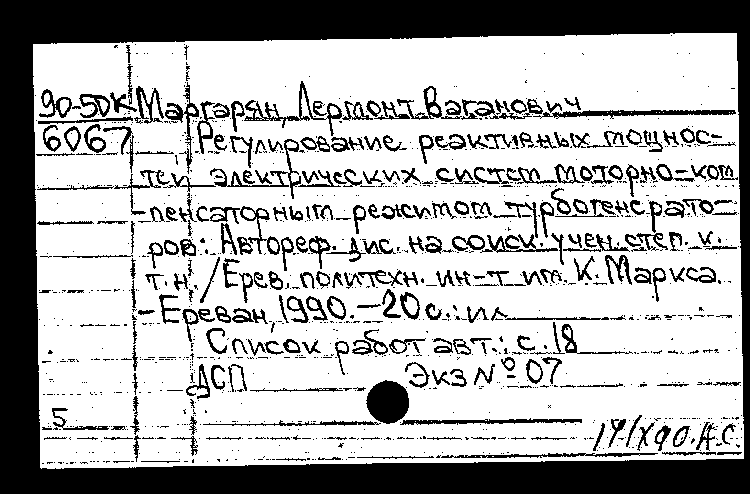 90-50К Маргарян, Лермонт Ваганович
6067 Регулирование реактивных мощнос-
тей электрических систем моторно-ком
-пенсаторным режимом турбогенерато-
ров: Автореф. дис. на соиск. учен. степ. к.
т.н. / Ерев. политехн. ин-т им. К. Маркса.
- Ереван, 1990. - 20 с.: ил
Список работ авт.: с. 18
ДСП Экз № 07
5
17/X90. А.С.